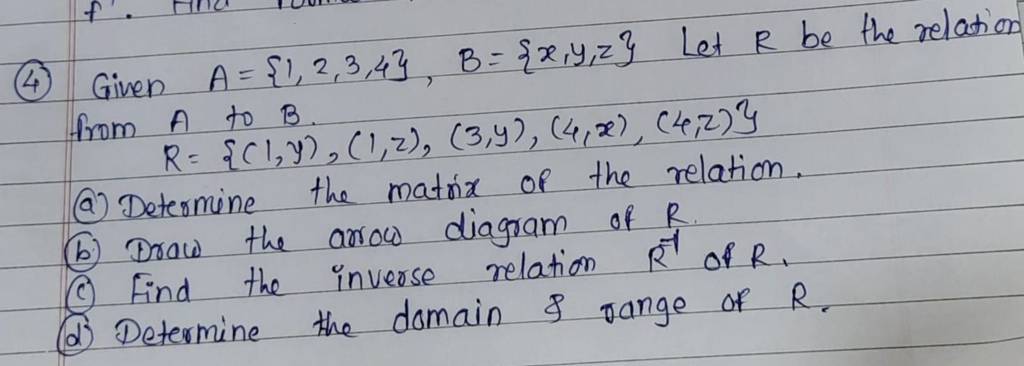 f'. Find
④ Given A = {1, 2, 3, 4}, B = {x, y, z} Let R be the relation
from A to B.
R = {(1, y), (1, z), (3, y), (4, x), (4, z)}
ⓐ Determine the matrix of the relation.
ⓑ Draw the arrow diagram of R.
ⓒ Find the inverse relation R⁻¹ of R.
ⓓ Determine the domain & range of R.